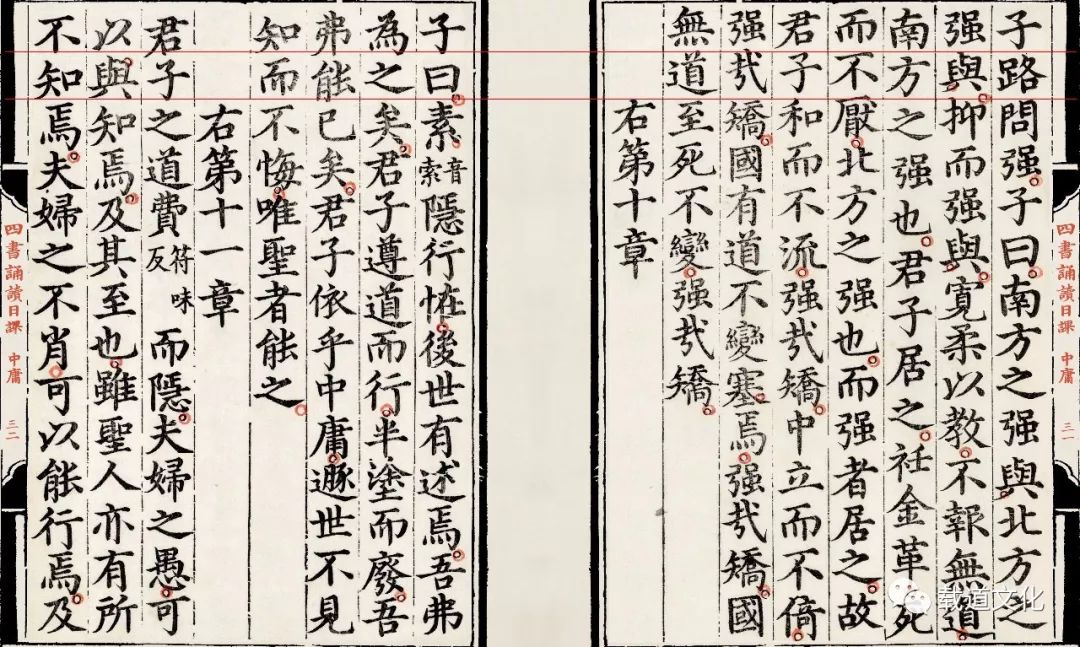 四書誦讀日課 中庸 三一
子路問强。子曰。南方之强與。北方之
强與。抑而强與。寬柔以教。不報無道。
南方之强也。君子居之。衽金革。死
而不厭。北方之强也。而强者居之。故
君子和而不流。强哉矯。中立而不倚。
强哉矯。國有道。不變塞焉。强哉矯。國
無道。至死不變。强哉矯。
右第十章
子曰。素音索隱行恠。後世有述焉。吾弗
為之矣。君子遵道而行。半塗而廢。吾
弗能已矣。君子依乎中庸。遯世不見
知而不悔。唯聖者能之。
右第十一章
君子之道費符味反而隱。夫婦之愚。可
以與知焉。及其至也。雖聖人亦有所
不知焉。夫婦之不肖。可以能行焉。及
四書誦讀日課 中庸 三二
载道文化